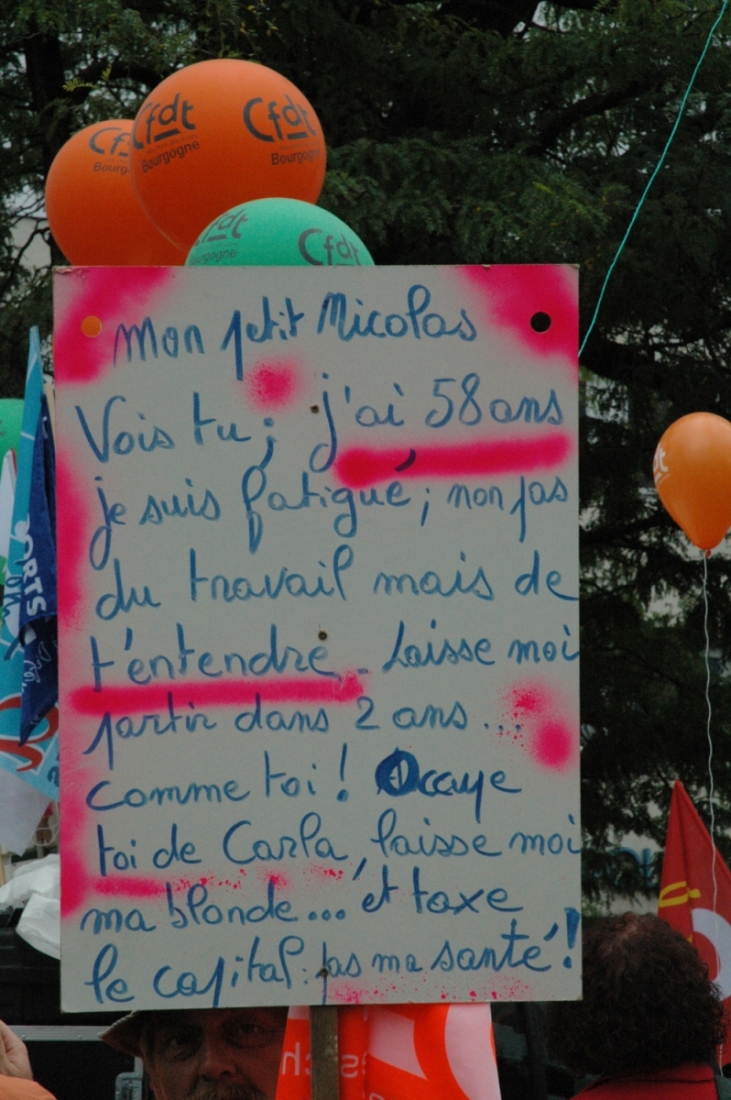 Cfdt
Bourgogne
Cfdt
Bourgogne
Cfdt
Cfdt
Mon petit Nicolas
Vois tu ; j'ai 58 ans
je suis fatigué ; non pas
du travail mais de
t'entendre.. Laisse moi
partir dans 2 ans ...
comme toi ! Occupe
toi de Carla, laisse moi
ma blonde... et taxe
le capital : pas ma santé !